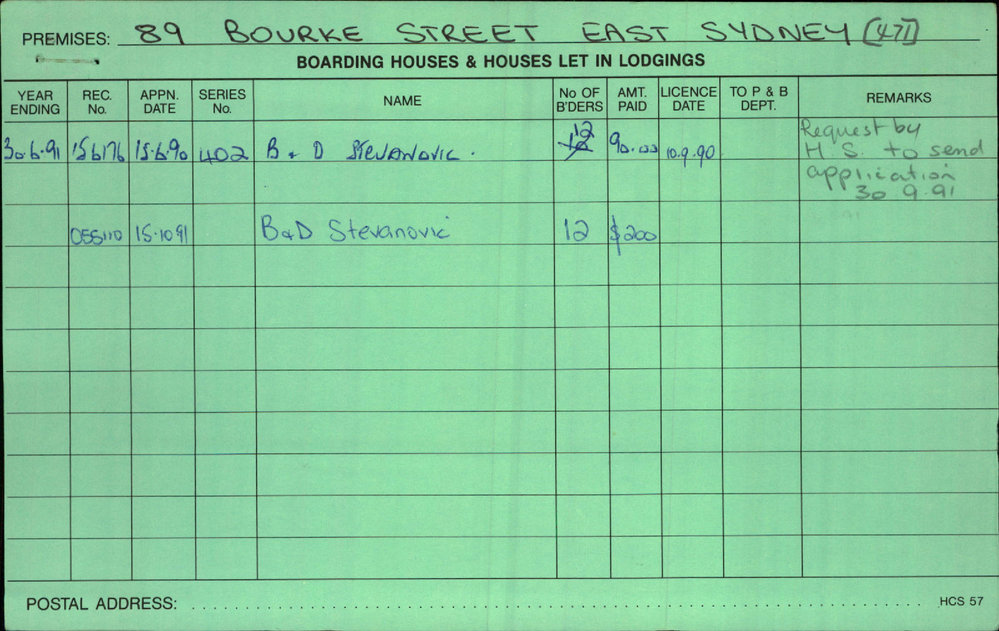 PREMISES: 89 BOURKE STREET EAST SYDNEY [471]
BOARDING HOUSES & HOUSES LET IN LODGINGS
YEAR ENDING REC. No. APPN. DATE SERIES No. NAME No OF B'DERS AMT. PAID LICENCE DATE TO P & B DEPT. REMARKS
30.6.91 156176 15.6.90 402 B & D STEVANOVIC. 12 90.00 10.9.90 Request by
H. S. to send
application
30.9.91
055110 15.10.91 B&D Stevanovic 12 $200
POSTAL ADDRESS:
HCS 57